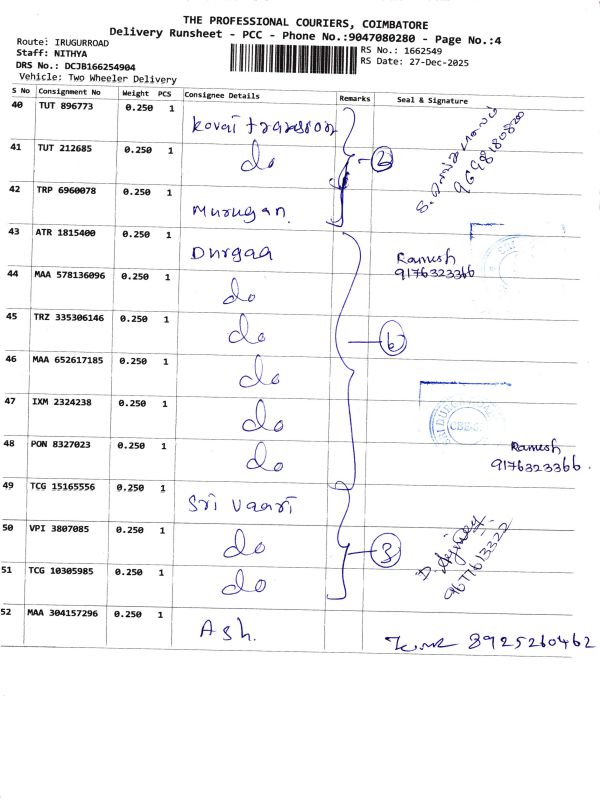 THE PROFESSIONAL COURIERS, COIMBATORE
Delivery Runsheet - PCC - Phone No.:9047080280 - Page No.:4
Route: IRUGURROAD
Staff: NITHYA
DRS No.: DCJB166254904
Vehicle: Two Wheeler Delivery
RS No.: 1662549
RS Date: 27-Dec-2025
S No Consignment No Weight PCS Consignee Details Remarks Seal & Signature
40 TUT 896773 0.250 1 Kovai
41 TUT 212685 0.250 1 do
2
42 TRP 6960078 0.250 1 Murugan
43 ATR 1815400 0.250 1 Durgaa
Ramesh
9176323366
44 MAA 578136096 0.250 1 do
45 TRZ 335306146 0.250 1 do
6
46 MAA 652617185 0.250 1 do
47 IXM 2324238 0.250 1 do
48 PON 8327023 0.250 1 do
Ramesh
9176323366.
49 TCG 15165556 0.250 1 Sri Vaari
50 VPI 3807085 0.250 1 do
3
9677613322
51 TCG 10305985 0.250 1 do
52 MAA 304157296 0.250 1 Ash.
8925260462